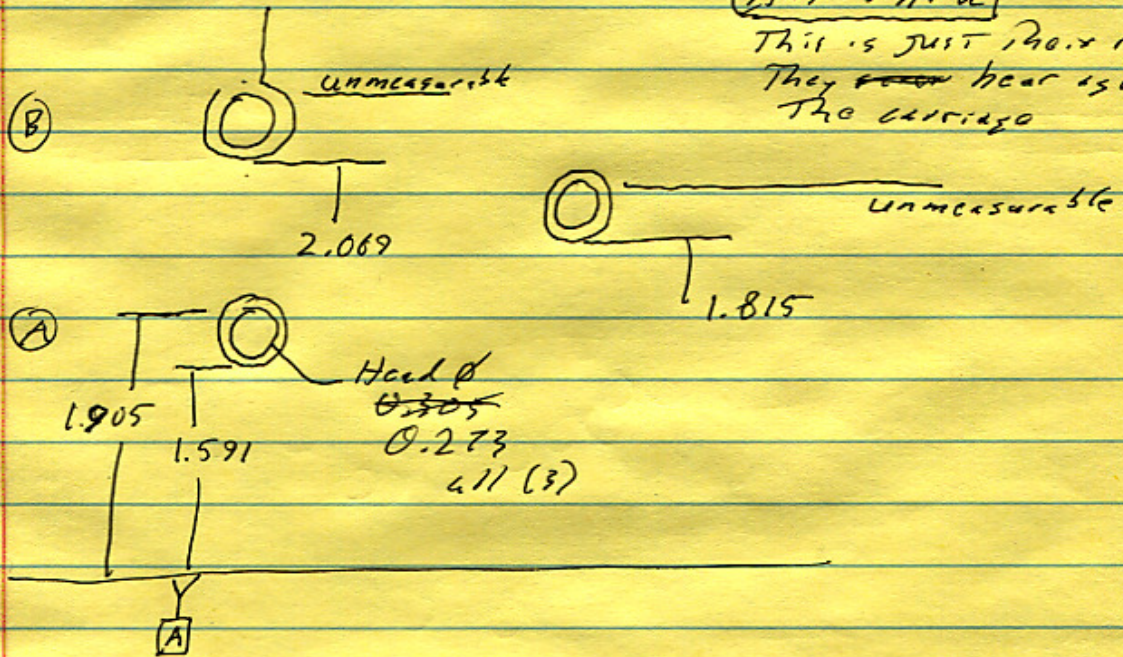 This is just their
They hear
The carriage
unmeasurable
B
2.069
unmeasurable
1.815
A
Head ø
0.305
0.273
all (3)
1.905
1.591
A